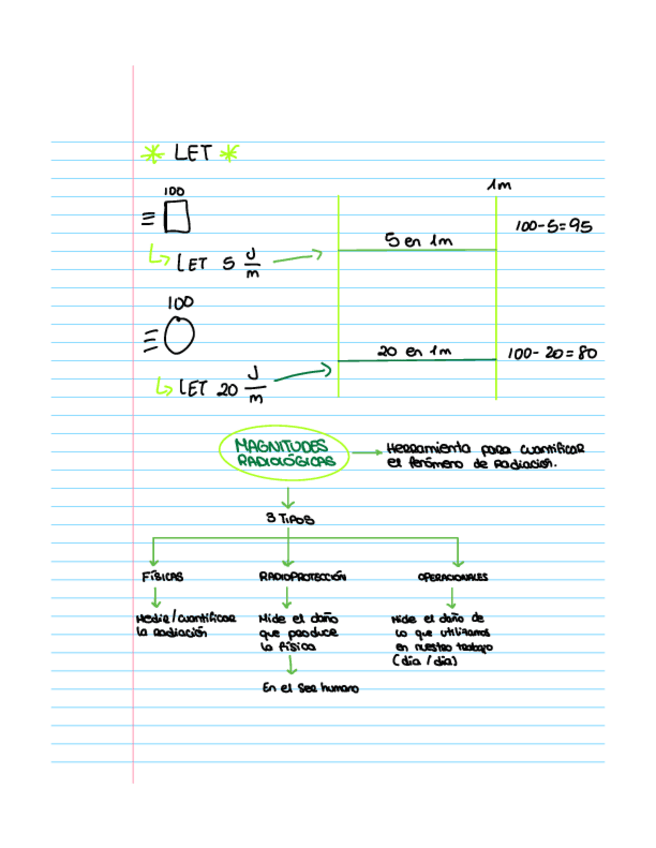 * LET *
100
1m
100-5=95
5 en 1m
LET 5 J/m
100
20 en 1m
100-20=80
LET 20 J/m
MAGNITUDES
RADIOLÓGICAS
Herramienta para cuantificar
el fenómeno de radiación.
3 TIPOS
FÍSICAS
RADIOPROTECCIÓN
OPERACIONALES
Medir/cuantificar
la radiación
Mide el daño
que produce
la física
Mide el daño de
lo que utilizamos
en nuestro trabajo
(día/día)
En el ser humano